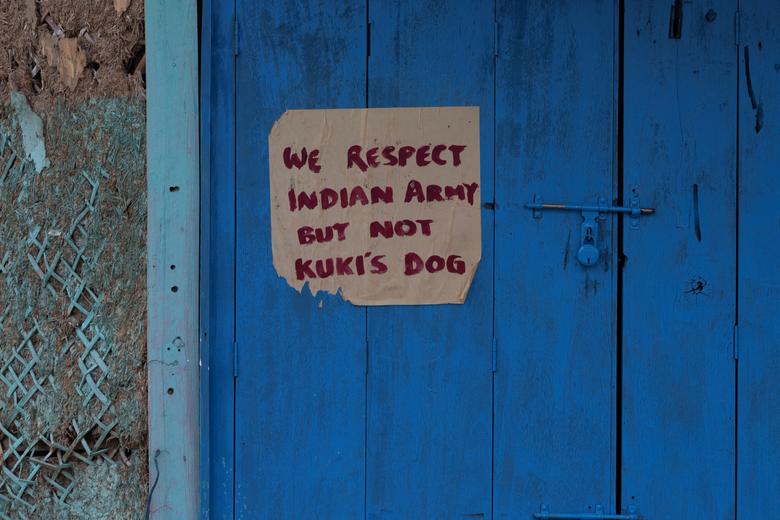 WE RESPECT
INDIAN ARMY
BUT NOT
KUKI'S DOG